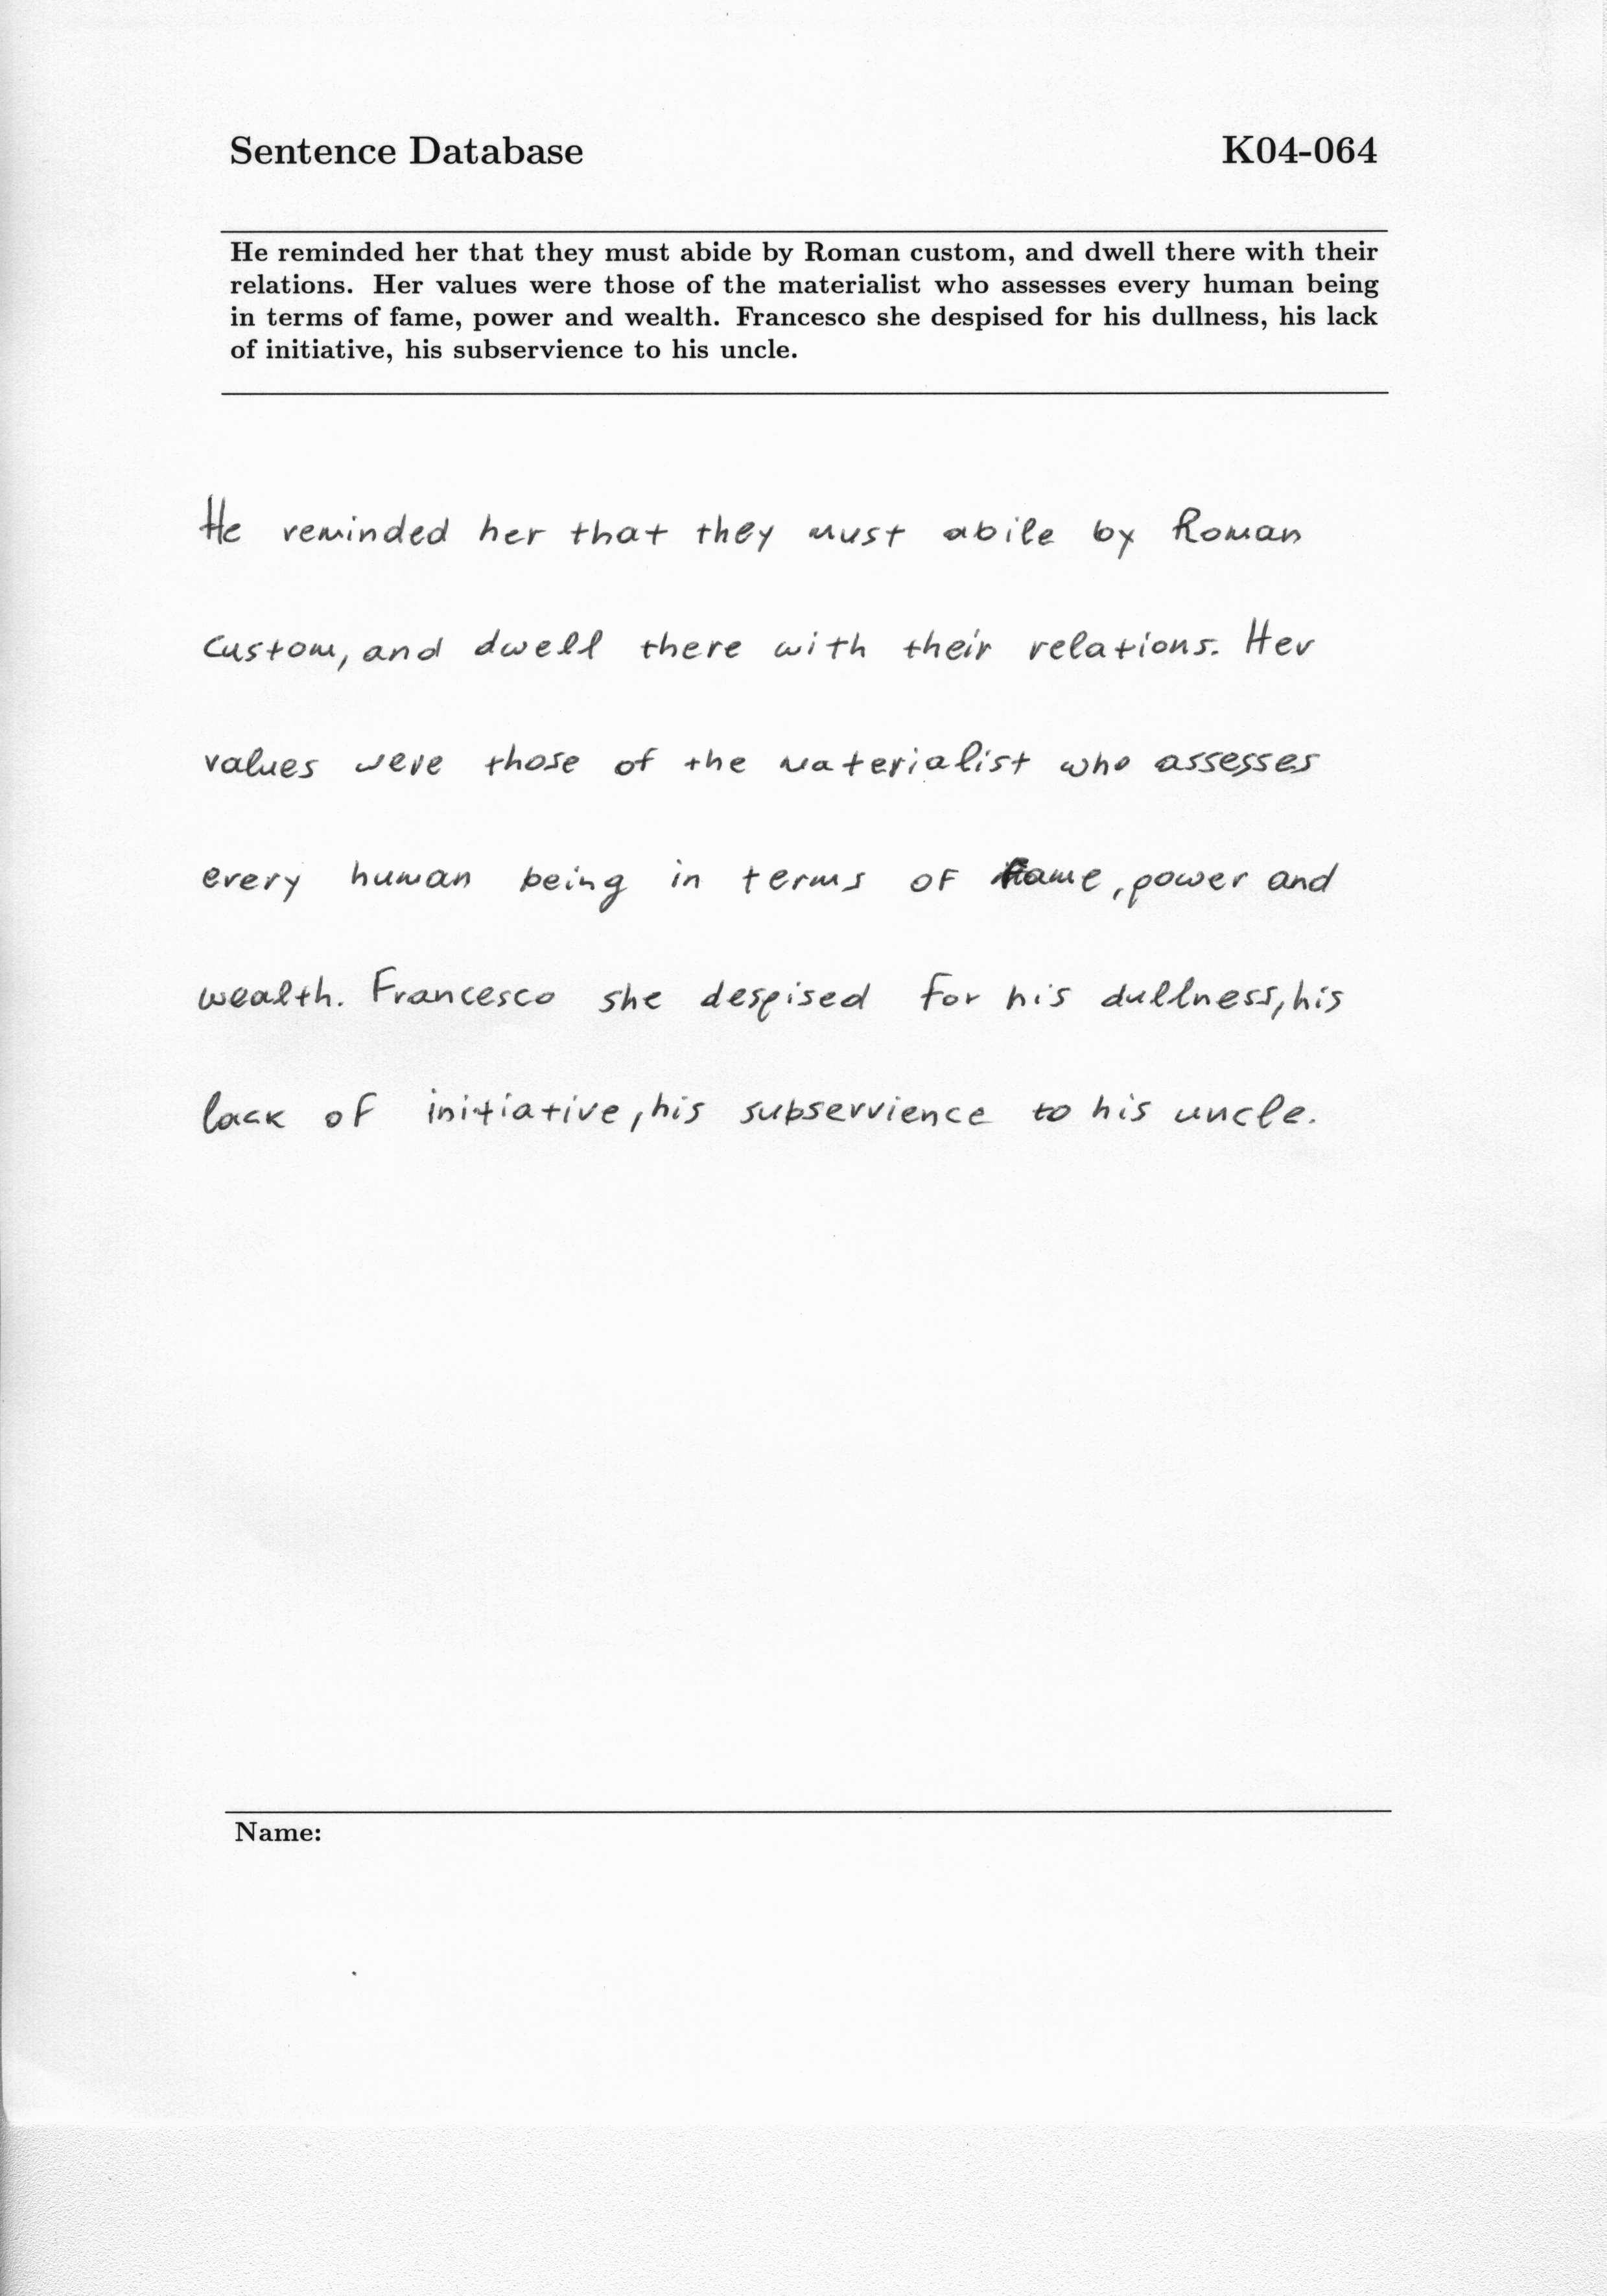 Sentence Database K04-064
He reminded her that they must abide by Roman custom, and dwell there with their
relations. Her values were those of the materialist who assesses every human being
in terms of fame, power and wealth. Francesco she despised for his dullness, his lack
of initiative, his subservience to his uncle.
He reminded her that they must abile by Roman
custom, and dwell there with their relations. Her
values were those of the materialist who assesses
every human being in terms of fame, power and
wealth. Francesco she despised for his dullness, his
lack of initiative, his subservience to his uncle.
Name: